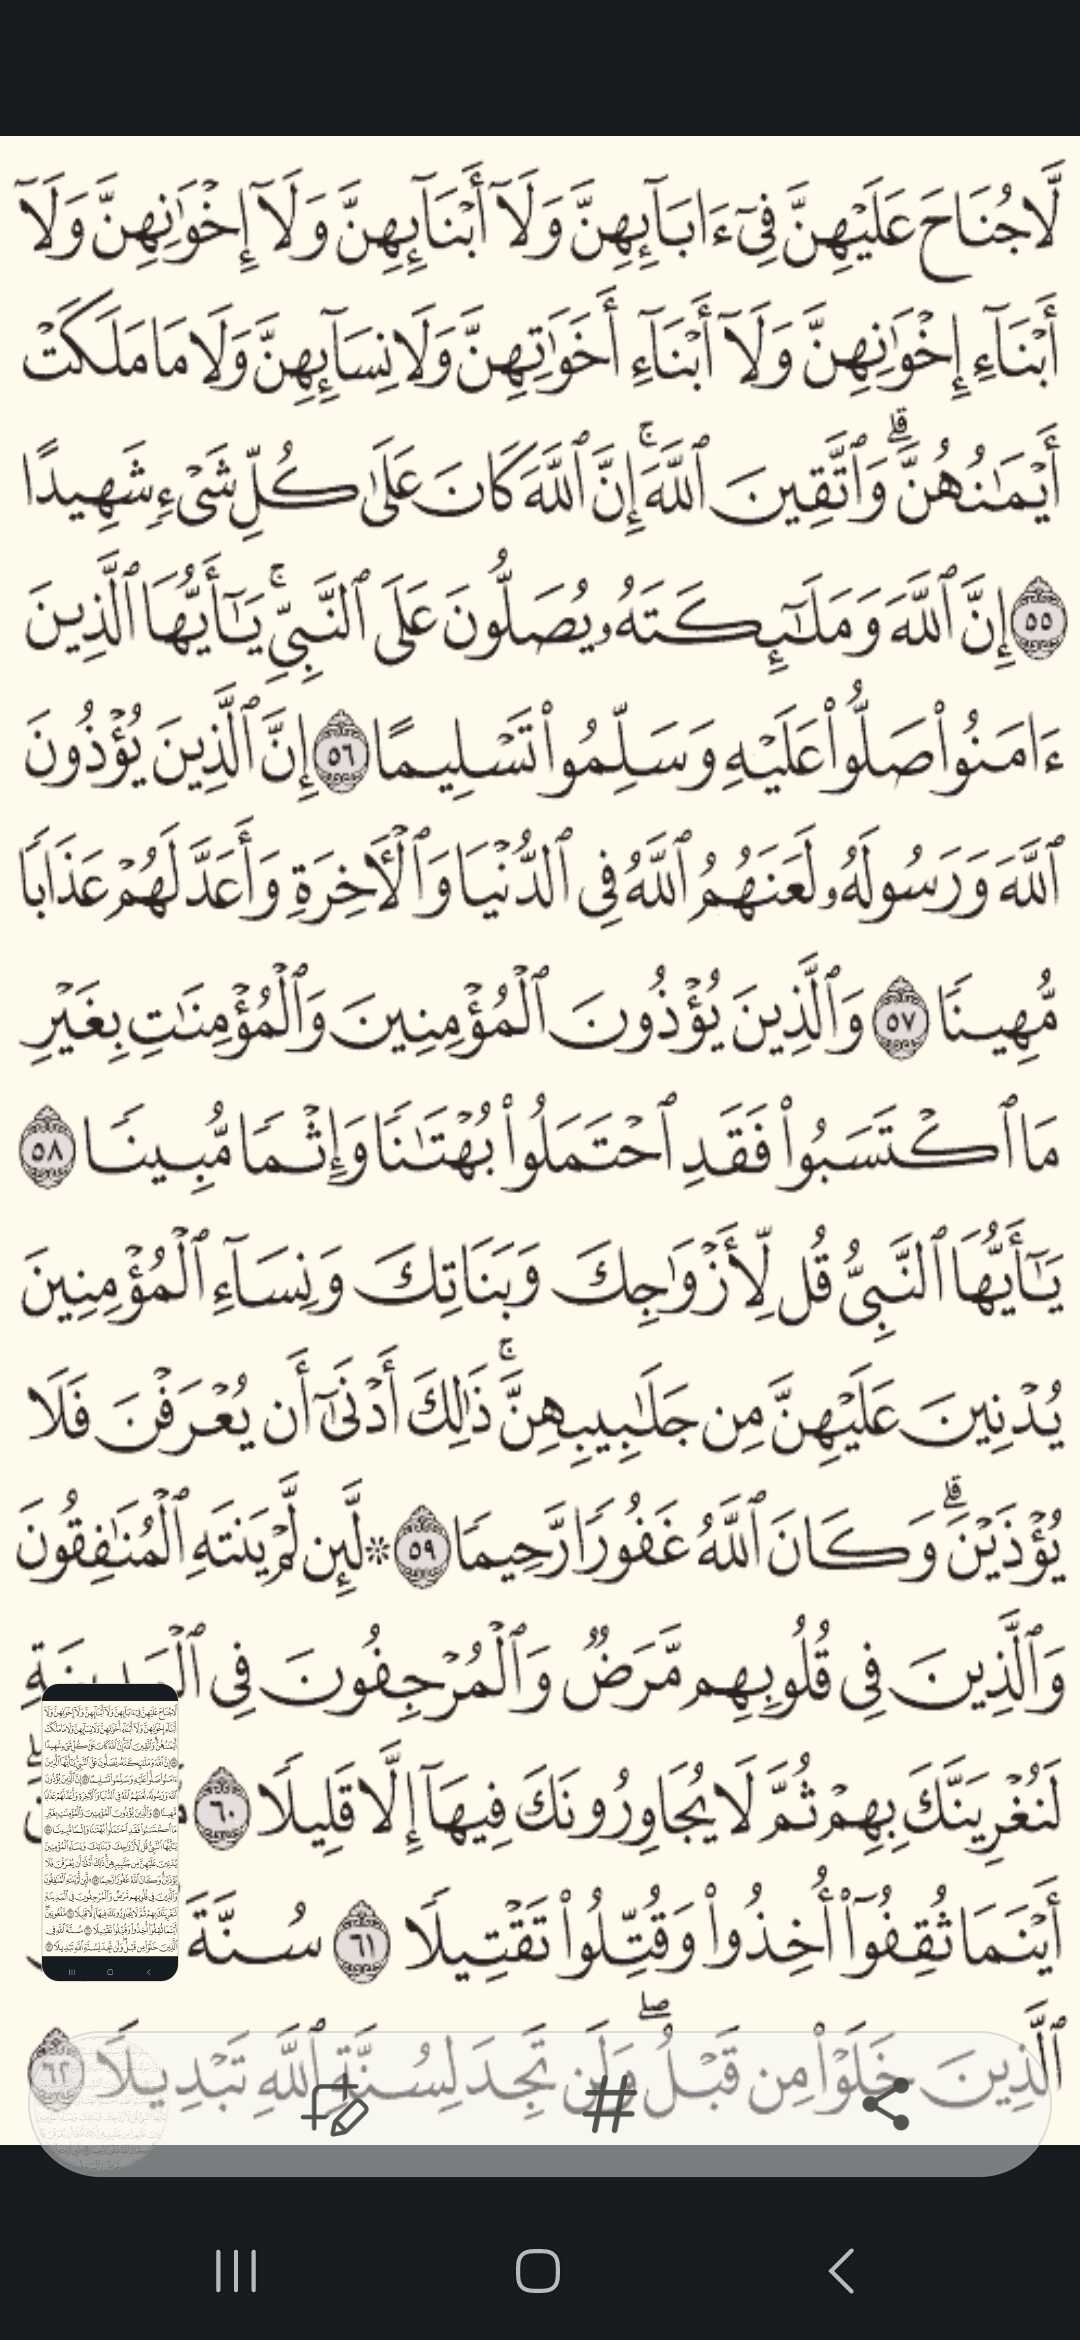 لَّا جُنَاحَ عَلَيْهِنَّ فِىٓ ءَابَآئِهِنَّ وَلَآ أَبْنَآئِهِنَّ وَلَآ إِخْوَٰنِهِنَّ وَلَآ
أَبْنَآءِ إِخْوَٰنِهِنَّ وَلَآ أَبْنَآءِ أَخَوَٰتِهِنَّ وَلَا نِسَآئِهِنَّ وَلَا مَا مَلَكَتْ
أَيْمَٰنُهُنَّ ۗ وَٱتَّقِينَ ٱللَّهَ ۚ إِنَّ ٱللَّهَ كَانَ عَلَىٰ كُلِّ شَىْءٍ شَهِيدًا
٥٥ إِنَّ ٱللَّهَ وَمَلَٰٓئِكَتَهُۥ يُصَلُّونَ عَلَى ٱلنَّبِىِّ ۚ يَٰٓأَيُّهَا ٱلَّذِينَ
ءَامَنُوا۟ صَلُّوا۟ عَلَيْهِ وَسَلِّمُوا۟ تَسْلِيمًا ٥٦ إِنَّ ٱلَّذِينَ يُؤْذُونَ
ٱللَّهَ وَرَسُولَهُۥ لَعَنَهُمُ ٱللَّهُ فِى ٱلدُّنْيَا وَٱلْـَٔاخِرَةِ وَأَعَدَّ لَهُمْ عَذَابًا
مُّهِينًا ٥٧ وَٱلَّذِينَ يُؤْذُونَ ٱلْمُؤْمِنِينَ وَٱلْمُؤْمِنَٰتِ بِغَيْرِ
مَا ٱكْتَسَبُوا۟ فَقَدِ ٱحْتَمَلُوا۟ بُهْتَٰنًا وَإِثْمًا مُّبِينًا ٥٨
يَٰٓأَيُّهَا ٱلنَّبِىُّ قُل لِّأَزْوَٰجِكَ وَبَنَاتِكَ وَنِسَآءِ ٱلْمُؤْمِنِينَ
يُدْنِينَ عَلَيْهِنَّ مِن جَلَٰبِيبِهِنَّ ۚ ذَٰلِكَ أَدْنَىٰٓ أَن يُعْرَفْنَ فَلَا
يُؤْذَيْنَ ۗ وَكَانَ ٱللَّهُ غَفُورًا رَّحِيمًا ٥٩ ۞ لَّئِن لَّمْ يَنتَهِ ٱلْمُنَٰفِقُونَ
وَٱلَّذِينَ فِى قُلُوبِهِم مَّرَضٌ وَٱلْمُرْجِفُونَ فِى ٱلْمَدِينَةِ
لَنُغْرِيَنَّكَ بِهِمْ ثُمَّ لَا يُجَاوِرُونَكَ فِيهَآ إِلَّا قَلِيلًا ٦٠
أَيْنَمَا ثُقِفُوٓا۟ أُخِذُوا۟ وَقُتِّلُوا۟ تَقْتِيلًا ٦١ سُنَّةَ
ٱلَّذِينَ خَلَوْا۟ مِن قَبْلُ ۖ وَلَن تَجِدَ لِسُنَّةِ ٱللَّهِ تَبْدِيلًا ٦٢